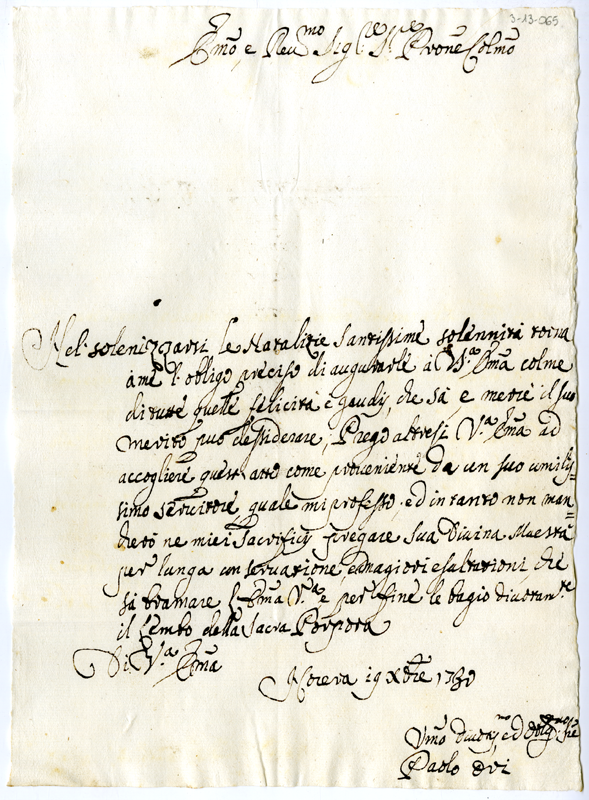 3-13-065
Emõ e Reu.mo Sig.re S.re Prone Colmõ
Nel solenizzarsi le Natalitie santissime solennità torna
à me l'obligo preciso di augurarle à V.a Emã colme
di tutte quelle felicità e gaudij, che sà, e mente il suo
merito può dessiderare; Prego altresi V.a Emã ad
accogliere quest'atto come proveniente da un suo umilis=
simo servitore, quale mi professo, ed in tanto non man=
cherò ne miei sacrificij pregare Sua Divina Maestà
per lunga conservatione, e magiori esaltationi, che
sà bramare l'Emã V.a e per fine le bagio divotam.te
il lembo della Sacra Porpora
Di V.a Emã
Nocera 19 Xbre 1730
Vmõ divot. ed oblig.
Paolo